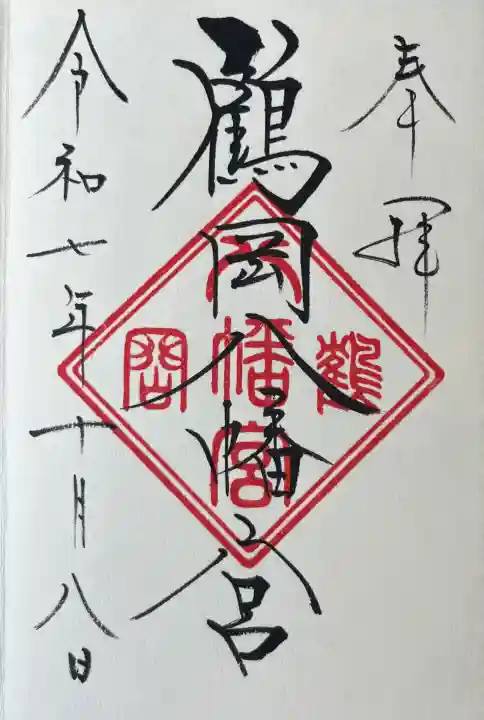 奉拝
鶴岡八幡宮
鶴
八幡宮
岡
令和七年十月八日